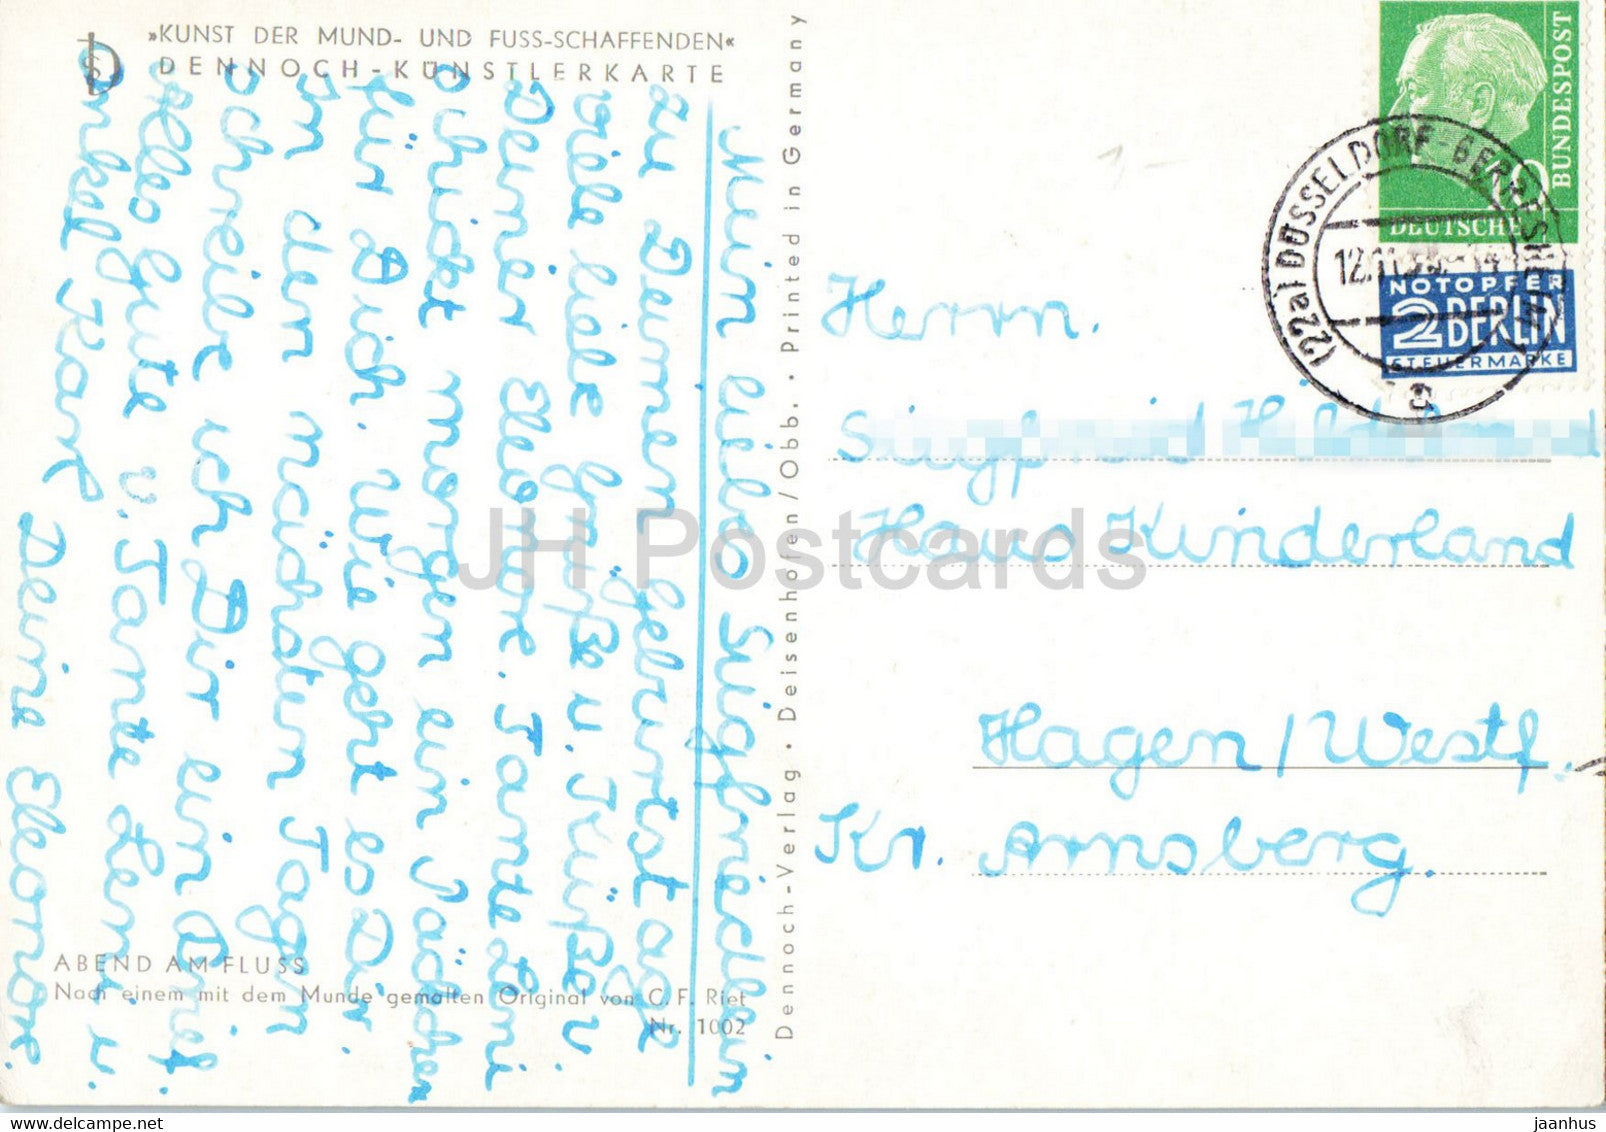 »KUNST DER MUND- UND FUSS-SCHAFFENDEN«
DENNOCH-KÜNSTLERKARTE
Mein liebes Siegfriedlein
zu Deinem Geburtstage
viele liebe Grüße u. Küße v.
Deiner Eleonore. Tante Leni
schickt morgen ein Päckchen
für Dich. Wie geht es Dir.
In den nächsten Tagen
schreibe ich Dir ein Brief.
Alles Gute v. Tante Leni u.
Onkel Karl Deine Eleonore
ABEND AM FLUSS
Nach einem mit dem Munde gemalten Original von C. F. Riet
Nr. 1002
Dennoch-Verlag · Deisenhofen/Obb. · Printed in Germany
1.-
BUNDESPOST
DEUTSCHE
10
NOTOPFER
2 BERLIN
STEUERMARKE
(22a) DÜSSELDORF-GERRESHEIM
a
Herrn.
Haus Kinderland
Hagen/Westf.
Kr. Arnsberg.
JH Postcards
delcampe.net
jaanhus